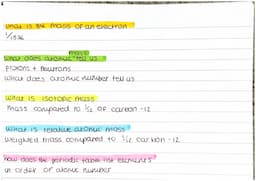 what is the mass of an electron
1/1836
what does atomic mass tell us
protons + neutrons
what does atomic number tell us
what is isotopic mass
mass compared to 1/12 of carbon-12
what is relative atomic mass
weighted mass compared to 1/12 carbon-12
how does the periodic table list elements
in order of atomic number